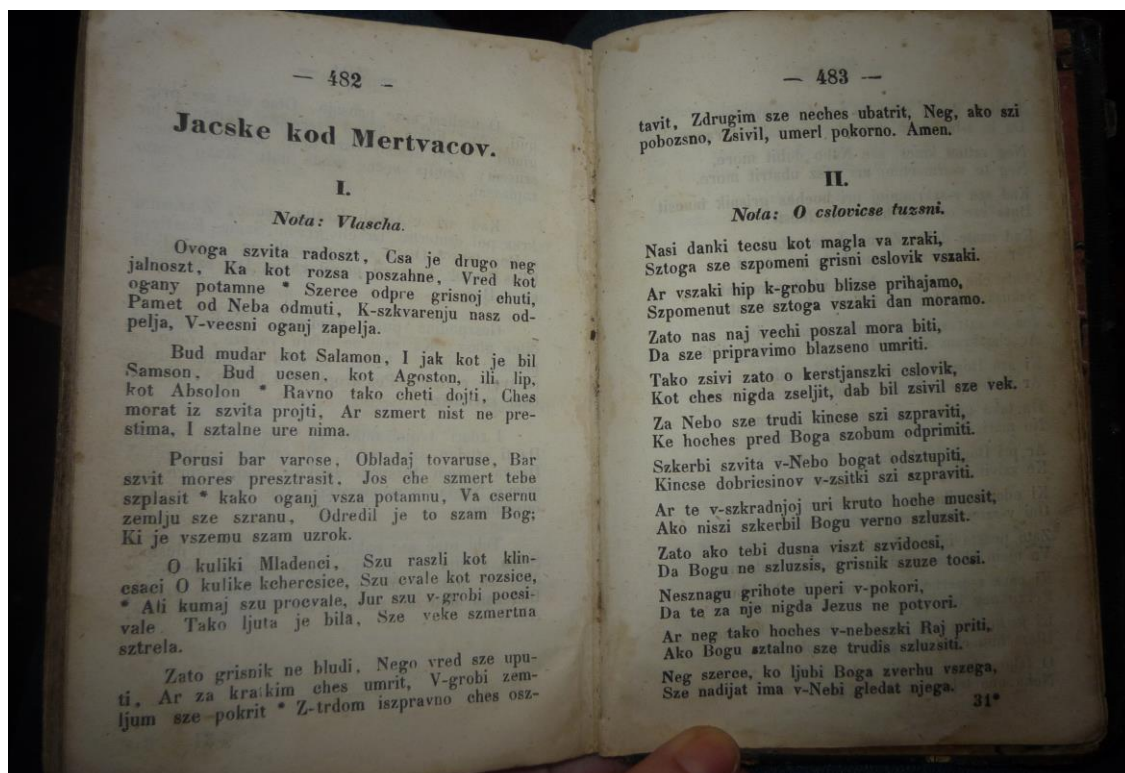 — 482 —
Jacske kod Mertvacov.
I.
Nota: Vlascha.
Ovoga szvita radoszt, Csa je drugo neg
jalnoszt, Ka kot rozsa poszahne, Vred kot
ogany potamne * Szerce odpre grisnoj chuti,
Pamet od Neba odmuti, K-szkvarenju nasz od-
pelja, V-vecsni oganj zapelja.
Bud mudar kot Salamon, I jak kot je bil
Samson, Bud ucsen, kot Agoston, ili lip,
kot Absolon * Ravno tako cheti dojti, Ches
morat iz szvita projti, Ar szmert nist ne pre-
stima, I sztalne ure nima.
Porusi bar varose, Obladaj tovaruse, Bar
szvit mores presztrasit, Jos che szmert tebe
szplasit * kako oganj vsza potamnu, Va csernu
zemlju sze szranu, Odredil je to szam Bog;
Ki je vszemu szam uzrok.
O kuliki Mladenci, Szu raszli kot klin-
csaci O kulike kchercsice, Szu cvale kot rozsice,
* Ali kumaj szu procvale, Jur szu v-grobi pocsi-
vale Tako ljuta je bila, Sze veke szmertna
sztrela.
Zato grisnik ne bludi, Nego vred sze upu-
ti, Ar za kratkim ches umrit, V-grobi zem-
ljum sze pokrit * Z-trdom iszpravno ches osz-
— 483 —
tavit, Zdrugim sze neches ubatrit, Neg, ako szi
pobozsno, Zsivil, umerl pokorno. Amen.
II.
Nota: O cslovicse tuzsni.
Nasi danki tecsu kot magla va zraki,
Sztoga sze szpomeni grisni cslovik vszaki.
Ar vszaki hip k-grobu blizse prihajamo,
Szpomenut sze sztoga vszaki dan moramo.
Zato nas naj vechi poszal mora biti,
Da sze pripravimo blazseno umriti.
Tako zsivi zato o kerstjanszki cslovik,
Kot ches nigda zseljit, dab bil zsivil sze vek.
Za Nebo sze trudi kincse szi szpraviti,
Ke hoches pred Boga szobum odprimiti.
Szkerbi szvita v-Nebo bogat odsztupiti,
Kincse dobricsinov v-zsitki szi szpraviti.
Ar te v-szkradnjoj uri kruto hoche mucsit,
Ako niszi szkerbil Bogu verno szluzsit.
Zato ako tebi dusna viszt szvidocsi,
Da Bogu ne szluzsis, grisnik szuze tocsi.
Nesznagu grihote uperi v-pokori,
Da te za nje nigda Jezus ne potvori.
Ar neg tako hoches v-nebeszki Raj priti,
Ako Bogu sztalno sze trudis szluzsiti.
Neg szerce, ko ljubi Boga zverhu vszega,
Sze nadijat ima v-Nebi gledat njega.
31*